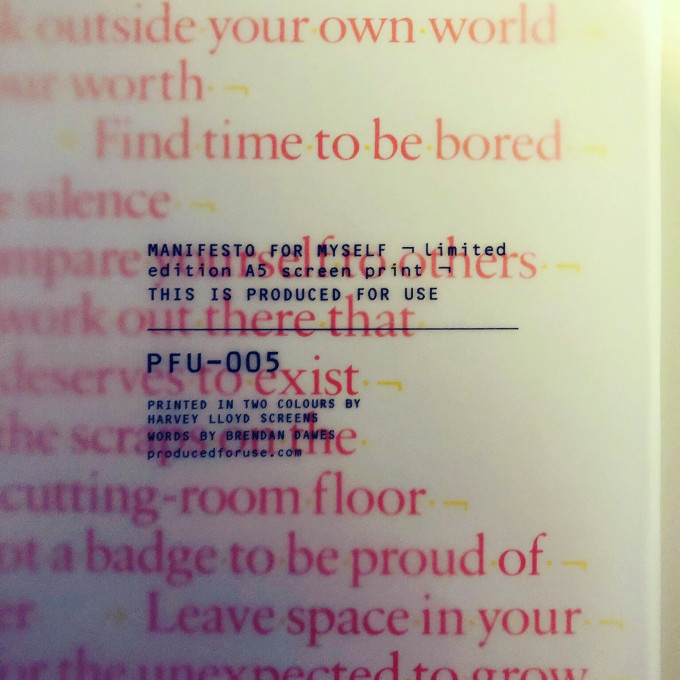 k outside your own world
our worth ¬
Find time to be bored ¬
e silence ¬
mpare yourself to others ¬
work out there that
deserves to exist ¬
the scraps on the
cutting-room floor ¬
ot a badge to be proud of ¬
er Leave space in your ¬
or the unexpected to grow
MANIFESTO FOR MYSELF ¬ limited
edition A5 screen print ¬
THIS IS PRODUCED FOR USE
PFU-005
PRINTED IN TWO COLOURS BY
HARVEY LLOYD SCREENS
WORDS BY BRENDAN DAWES
producedforuse.com